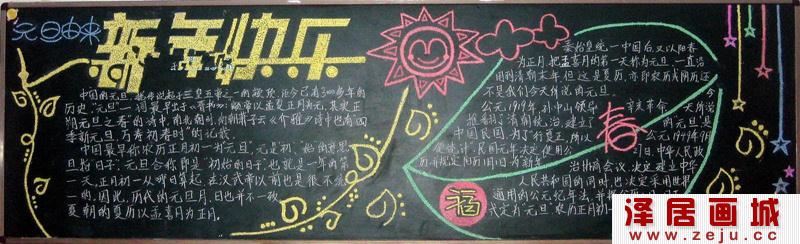 元旦由来
新年快乐
中国的元旦,据传说起于三皇五帝之一的颛顼,距今已有3000多年的
历史。"元旦"一词最早出于
期元旦之春"的诗中,南北朝时,南朝萧子云《介雅》诗中也有"四
季新元旦,万寿初春时"的记载。
中国最早称农历正月初一为元旦,元是"初"、"始"的意思
旦指"日子",元旦合称即是"初始的日子",也就是一年的第
一天。正月初一从哪日算起,在汉武帝以前也是很不统
一的。因此,历代的元旦月、日也并不一致
夏朝的夏历以孟喜月为正月
秦始皇统一中国后,又以阳春
为正月,把孟喜月的第一天称为元旦,一直沿
用到清朝末年,但这是夏历,亦即农历或阴历还
不是我们今天所说的元旦。
公元1911年,孙中山领导
辛亥革命
推翻了清朝统治,建立了
中国民国
为了"行夏正,所以
便统计"民国元年决定使用公
历
春
公元1949年9月
27日,中华人民政
治协商会议,决定建立中华
人民共和国的同时,也决定采用世界
通用的公元纪年法,并
定为"元旦"农历正月初一
福
泽居画城
www.zeju.cc